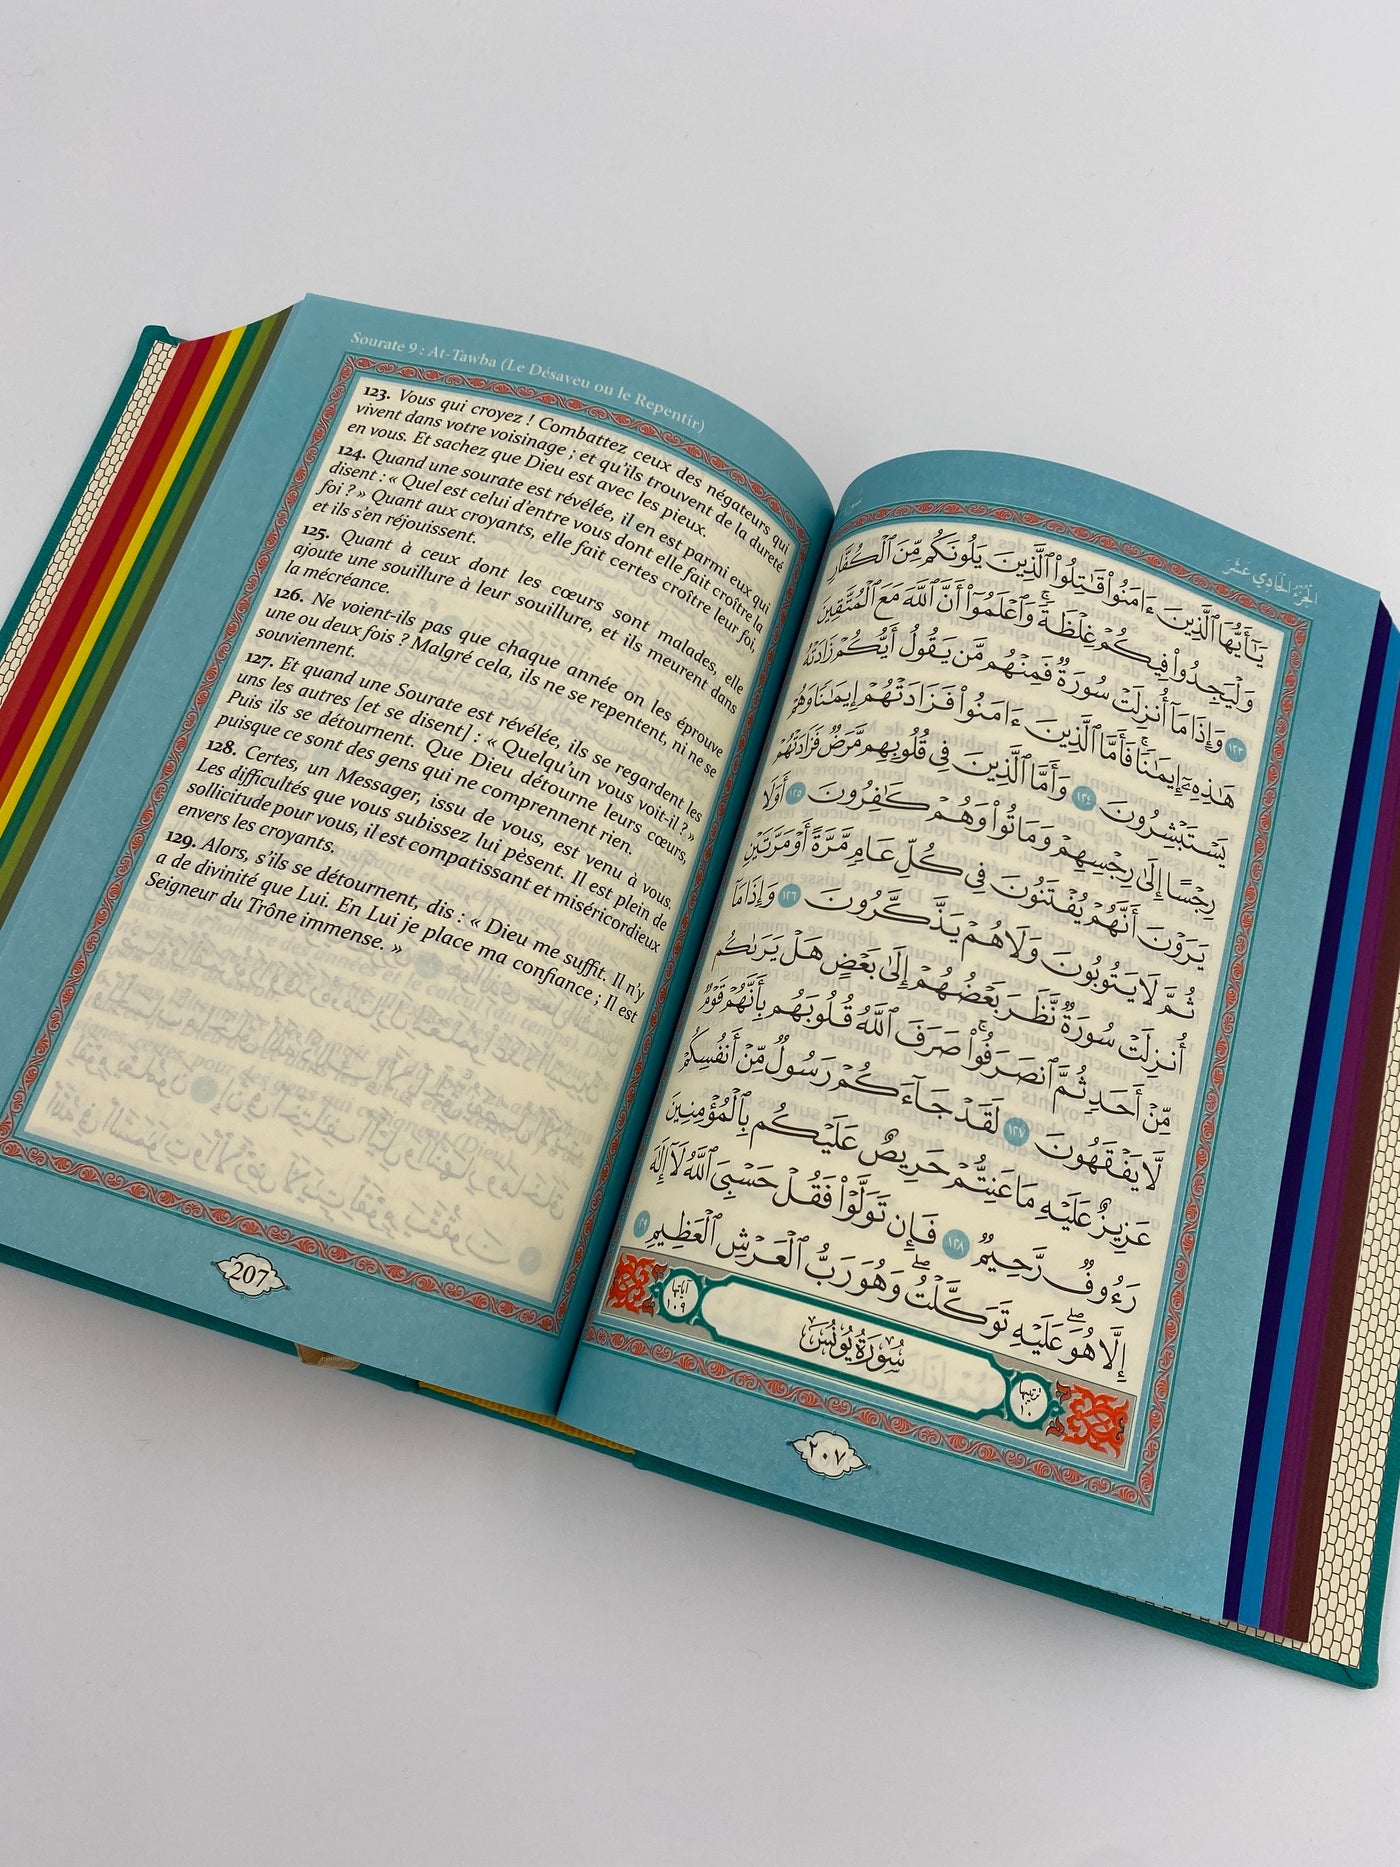 Sourate 9 : At-Tawba (Le Désaveu ou le Repentir)
123. Vous qui croyez ! Combattez ceux des négateurs qui
vivent dans votre voisinage ; et qu'ils trouvent de la dureté
en vous. Et sachez que Dieu est avec les pieux.
124. Quand une sourate est révélée, il en est parmi eux qui
disent : « Quel est celui d'entre vous dont elle fait croître la
foi ? » Quant aux croyants, elle fait certes croître leur foi,
et ils s'en réjouissent.
125. Quant à ceux dont les cœurs sont malades, elle
ajoute une souillure à leur souillure, et ils meurent dans
la mécréance.
126. Ne voient-ils pas que chaque année on les éprouve
une ou deux fois ? Malgré cela, ils ne se repentent, ni ne se
souviennent.
127. Et quand une Sourate est révélée, ils se regardent les
uns les autres [et se disent] : « Quelqu'un vous voit-il ? »
Puis ils se détournent. Que Dieu détourne leurs cœurs,
puisque ce sont des gens qui ne comprennent rien.
128. Certes, un Messager, issu de vous, est venu à vous.
Les difficultés que vous subissez lui pèsent. Il est plein de
sollicitude pour vous, il est compatissant et miséricordieux
envers les croyants.
129. Alors, s'ils se détournent, dis : « Dieu me suffit. Il n'y
a de divinité que Lui. En Lui je place ma confiance ; Il est
Seigneur du Trône immense. »
207
الجزء الحادي عشر
يَٰٓأَيُّهَا ٱلَّذِينَ ءَامَنُوا۟ قَٰتِلُوا۟ ٱلَّذِينَ يَلُونَكُم مِّنَ ٱلْكُفَّارِ
وَلْيَجِدُوا۟ فِيكُمْ غِلْظَةً ۚ وَٱعْلَمُوٓا۟ أَنَّ ٱللَّهَ مَعَ ٱلْمُتَّقِينَ
١٢٣ وَإِذَا مَآ أُنزِلَتْ سُورَةٌ فَمِنْهُم مَّن يَقُولُ أَيُّكُمْ زَادَتْهُ
هَٰذِهِۦٓ إِيمَٰنًا ۚ فَأَمَّا ٱلَّذِينَ ءَامَنُوا۟ فَزَادَتْهُمْ إِيمَٰنًا وَهُمْ
يَسْتَبْشِرُونَ ١٢٤ وَأَمَّا ٱلَّذِينَ فِى قُلُوبِهِم مَّرَضٌ فَزَادَتْهُمْ
رِجْسًا إِلَىٰ رِجْسِهِمْ وَمَاتُوا۟ وَهُمْ كَٰفِرُونَ ١٢٥ أَوَلَا
يَرَوْنَ أَنَّهُمْ يُفْتَنُونَ فِى كُلِّ عَامٍ مَّرَّةً أَوْ مَرَّتَيْنِ
ثُمَّ لَا يَتُوبُونَ وَلَا هُمْ يَذَّكَّرُونَ ١٢٦ وَإِذَا مَآ
أُنزِلَتْ سُورَةٌ نَّظَرَ بَعْضُهُمْ إِلَىٰ بَعْضٍ هَلْ يَرَىٰكُم
مِّنْ أَحَدٍ ثُمَّ ٱنصَرَفُوا۟ ۚ صَرَفَ ٱللَّهُ قُلُوبَهُم بِأَنَّهُمْ قَوْمٌ
لَّا يَفْقَهُونَ ١٢٧ لَقَدْ جَآءَكُمْ رَسُولٌ مِّنْ أَنفُسِكُمْ
عَزِيزٌ عَلَيْهِ مَا عَنِتُّمْ حَرِيصٌ عَلَيْكُم بِٱلْمُؤْمِنِينَ
رَءُوفٌ رَّحِيمٌ ١٢٨ فَإِن تَوَلَّوْا۟ فَقُلْ حَسْبِىَ ٱللَّهُ لَآ إِلَٰهَ
إِلَّا هُوَ ۖ عَلَيْهِ تَوَكَّلْتُ ۖ وَهُوَ رَبُّ ٱلْعَرْشِ ٱلْعَظِيمِ ١٢٩
ترتيبها ١٠ سُورَةُ يُونُسَ آياتها ١٠٩
٢٠٧